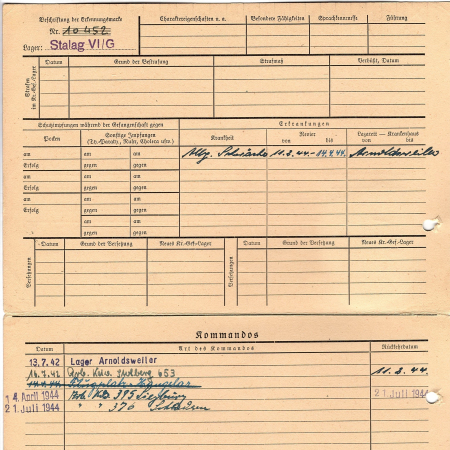 Beschriftung der Erkennungsmarke
Nr. 10452
Lager: Stalag VI/G
Charaktereigenschaften u. a.
Besondere Fähigkeiten
Sprachkenntnisse
Führung
Strafen im Kr.-Gef.-Lager
Datum
Grund der Bestrafung
Strafmaß
Verbüßt, Datum
Schutzimpfungen während der Gefangenschaft gegen
Erkrankungen
Pocken
Sonstige Impfungen
(Ty.-Paraty., Ruhr, Cholera usw.)
Krankheit
Revier
von bis
Lazarett – Krankenhaus
von bis
am am am
Erfolg gegen gegen
am am am
Erfolg gegen gegen
am am am
Erfolg gegen gegen
am am
gegen gegen
am am
gegen gegen
Allg. Schwäche 11.3.44.-14.4.44. Arnoldsweiler
Versetzungen
Datum
Grund der Versetzung
Neues Kr.-Gef.-Lager
Versetzungen
Datum
Grund der Versetzung
Neues Kr.-Gef.-Lager
Kommandos
Datum
Art des Kommandos
Rückkehrdatum
13.7.42 Lager Arnoldsweiler
14.7.42 Arb. Kdo. 653 11.3.44.
14.4.44 Flugplatz Hangelar
14. April 1944 Arb. Kdo. 395 Siegburg 21. Juli 1944
21. Juli 1944 " " 370